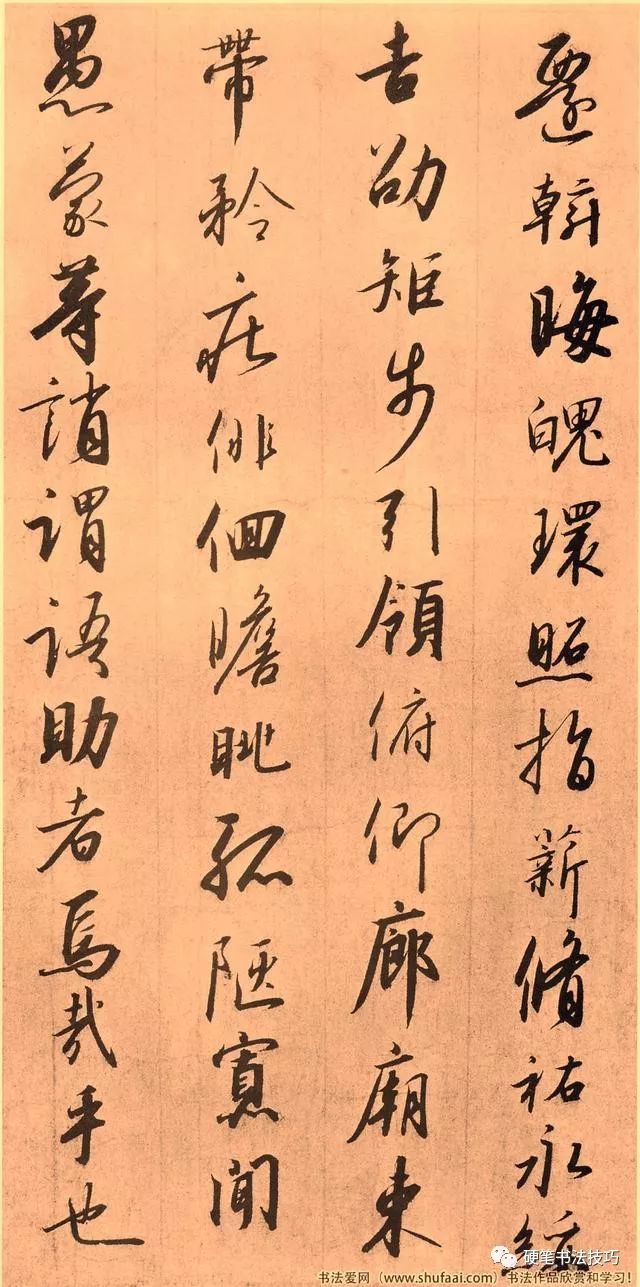 斡晦魄環照指薪脩祐永綏
吉劭矩步引領俯仰廊廟束
帶矜庄俳佪瞻眺孤陋寡聞
愚蒙等誚謂語助者焉哉乎也
硬笔书法技巧
书法爱网（www.shufaai.com）书法作品欣赏和学习！